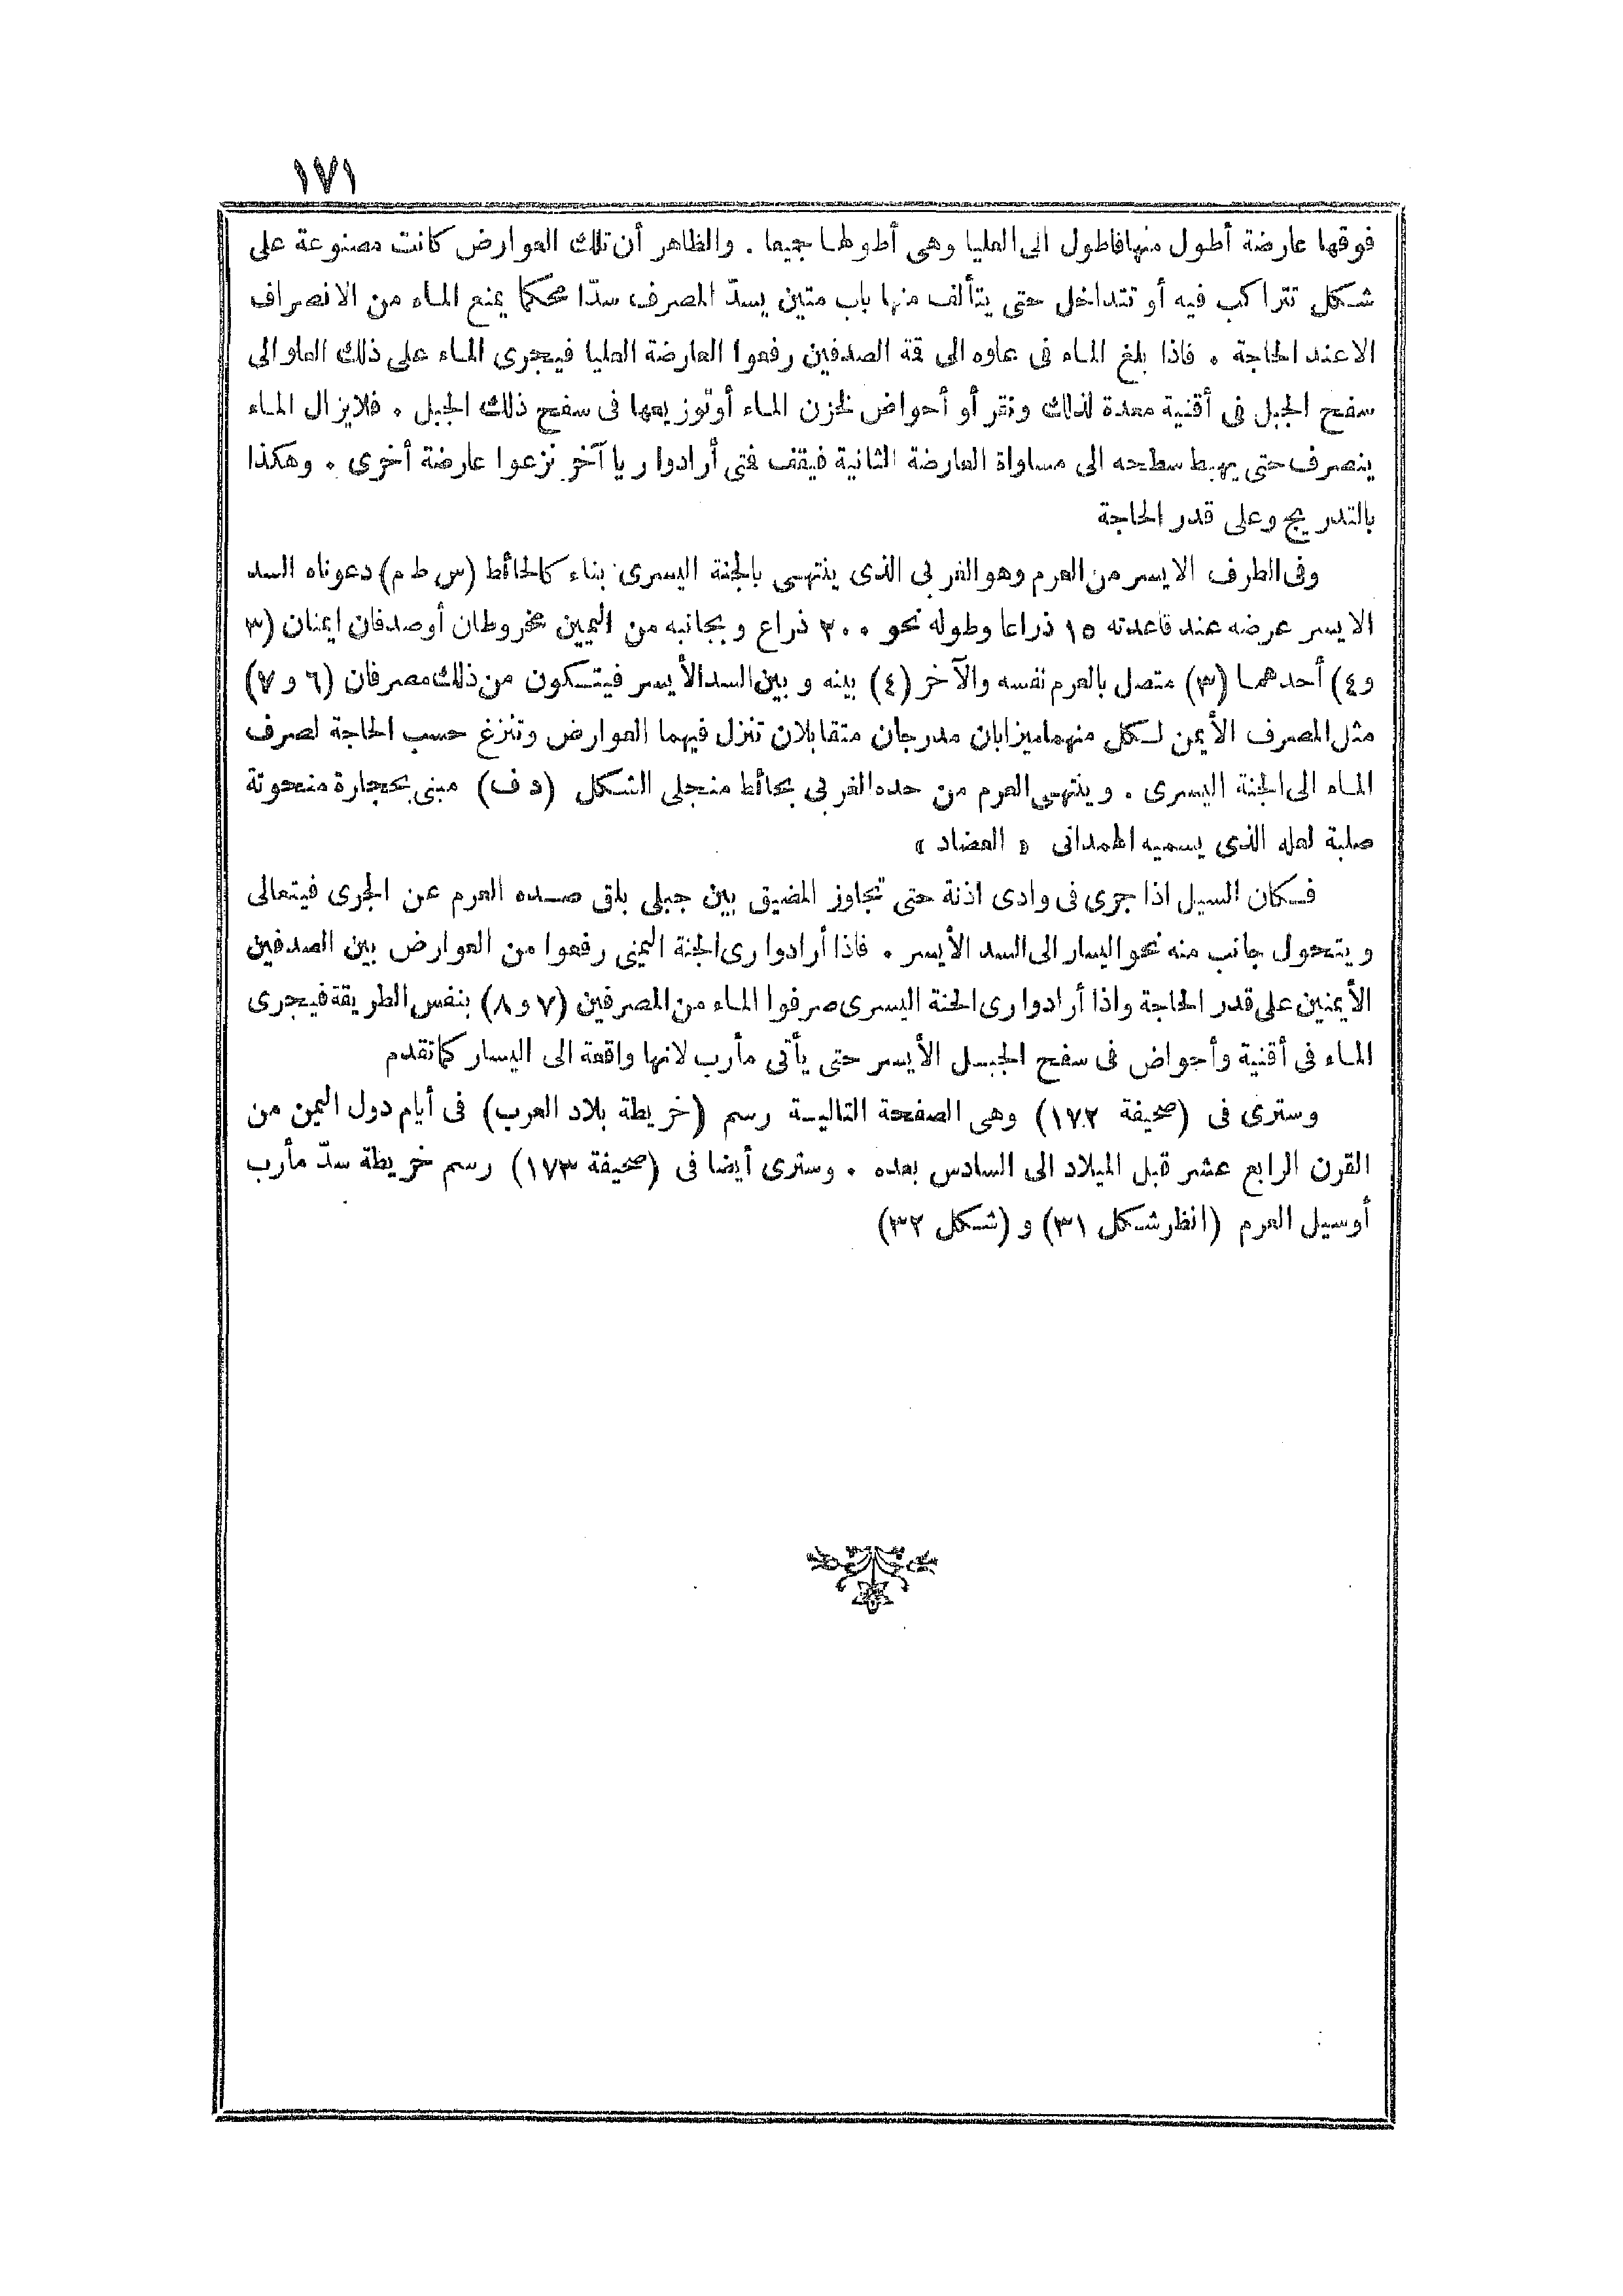 ١٧١
فوقها عارضة أطول منها فاطول الى العليا وهى أطولها جميعا . والظاهر أن تلك العوارض كانت مصنوعة على
شكل تتراكب فيه أو تتداخل حتى يتألف منها باب متين يسدّ المصرف سدّا محكما يمنع الماء من الانصراف
الا عند الحاجة . فاذا بلغ الماء فى علوه الى قمة الصدفين رفعوا العارضة العليا فيجرى الماء على ذلك العلو الى
سفح الجبل فى أقنية معدة لذلك ونقر أو أحواض لخزن الماء أو توزيعها فى سفح ذلك الجبل . فلا يزال الماء
ينصرف حتى يهبط سطحه الى مساواة العارضة الثانية فيقف فتى أرادوا ريا آخر نزعوا عارضة أخرى . وهكذا
بالتدريج وعلى قدر الحاجة
وفى الطرف الايسر من العرم وهو الغربى الذى ينتهى بالجنة اليسرى بناء كالحائط (س ط م) دعوناه السد
الايسر عرضه عند قاعدته ١٥ ذراعا وطوله نحو ٢٠٠ ذراع وبجانبه من اليمين مخروطان أو صدفان ايمنان (٣
و٤) أحدهما (٣) متصل بالعرم نفسه والآخر (٤) بينه وبين السد الأيسر فيتكون من ذلك مصرفان (٦ و ٧)
مثل المصرف الأيمن لكل منهما ميزابان مدرجان متقابلان تنزل فيهما العوارض وتنزغ حسب الحاجة لصرف
الماء الى الجنة اليسرى . وينتهى العرم من حده الغربى بحائط منجلى الشكل (د ف) مبنى بحجارة منحوتة
صلبة لعله الذى يسميه الهمدانى « العضاد »
فكان السيل اذا جرى فى وادى اذنة حتى تجاوز المضيق بين جبلى بلق صده العرم عن الجرى فيتعالى
ويتحول جانب منه نحو اليسار الى السد الأيسر . فاذا أرادوا رى الجنة اليمنى رفعوا من العوارض بين الصدفين
الأيمنين على قدر الحاجة واذا أرادوا رى الجنة اليسرى صرفوا الماء من المصرفين (٧ و ٨) بنفس الطريقة فيجرى
الماء فى أقنية وأحواض فى سفح الجبل الأيسر حتى يأتى مأرب لانها واقعة الى اليسار كما تقدم
وسترى فى (صحيفة ١٧٢) وهى الصفحة التالية رسم (خريطة بلاد العرب) فى أيام دول اليمن من
القرن الرابع عشر قبل الميلاد الى السادس بعده . وسترى أيضا فى (صحيفة ١٧٣) رسم خريطة سدّ مأرب
أو سيل العرم (انظر شكل ٣١) و (شكل ٣٢)